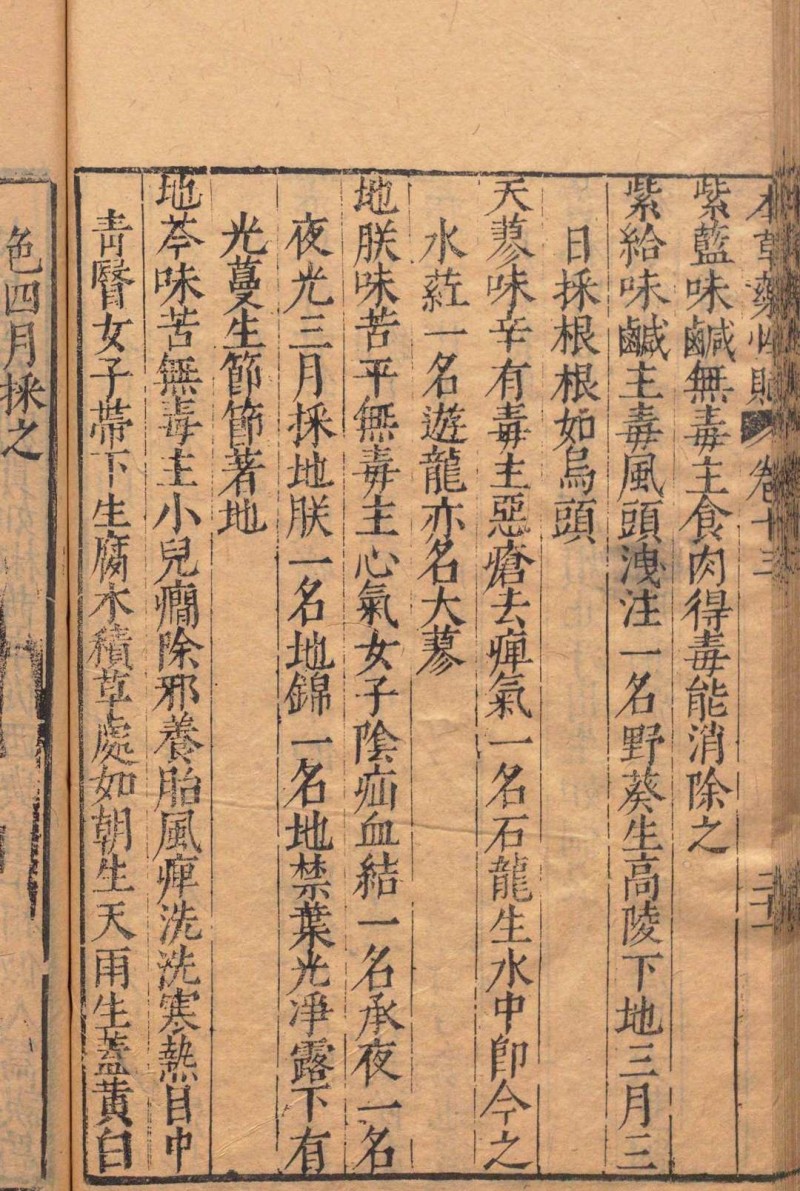 本草藥性賦 卷十三 二十一
紫藍味鹹無毒主食肉得毒能消除之
紫給味鹹主毒風頭洩注一名野葵生高陵下地三月三
日採根根如烏頭
天蓼味辛有毒主惡瘡去痺氣一名石龍生水中即今之
水葒一名遊龍亦名大蓼
地朕味苦平無毒主心氣女子陰疝血結一名承夜一名
夜光三月採地朕一名地錦一名地禁葉光淨露下有
光蔓生節節著地
地芩味苦無毒主小兒癇除邪養胎風痺洗洗寒熱目中
青瞖女子帶下生腐木積草處如朝生天雨生蓋黃白
色四月採之